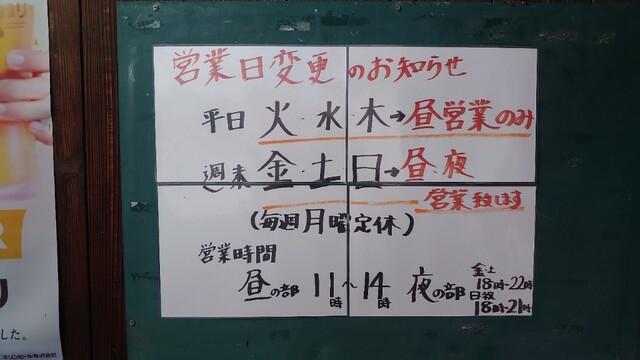 営業日変更のお知らせ
平日 火・水・木→昼営業のみ
週末 金・土・日→昼・夜
営業致します
(毎週月曜定休)
営業時間
昼の部 11時〜14時 夜の部
金・土
18時-22時
日祝
18時-21時
した。
キリンビール株式会社